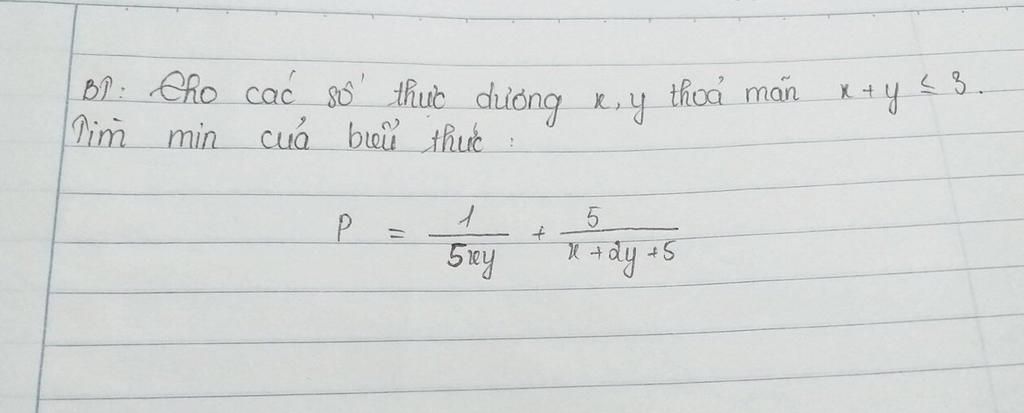 BT: Cho các số thực dương x, y thoả mãn x + y ≤ 3.
Tìm min của biểu thức :
P = \frac{1}{5xy} + \frac{5}{x + 2y + 5}